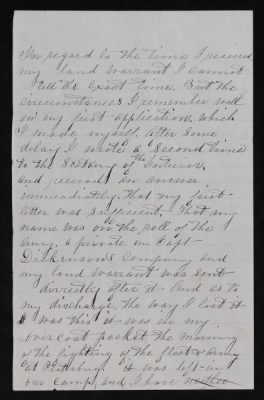 In regard to the time I received
my land warrant I cannot
tell the exact time. But the
circumstances I remember well
on my first application, which
I made myself. After some
delay I wrote a second time
to the Sectary of the Interior,
and received an answer
immediately. That my first
letter was sufficient. That my
name was on the roll of the
army, a private in Capt
Dickensons Company and
my land warrant was sent
directly after it And as to
my discharge, the way I lost it
was this it was in my
over coat pocket the morning
of the fighting of the fleet & Army
at Plattsburgh it was left in
our Camp, and I have